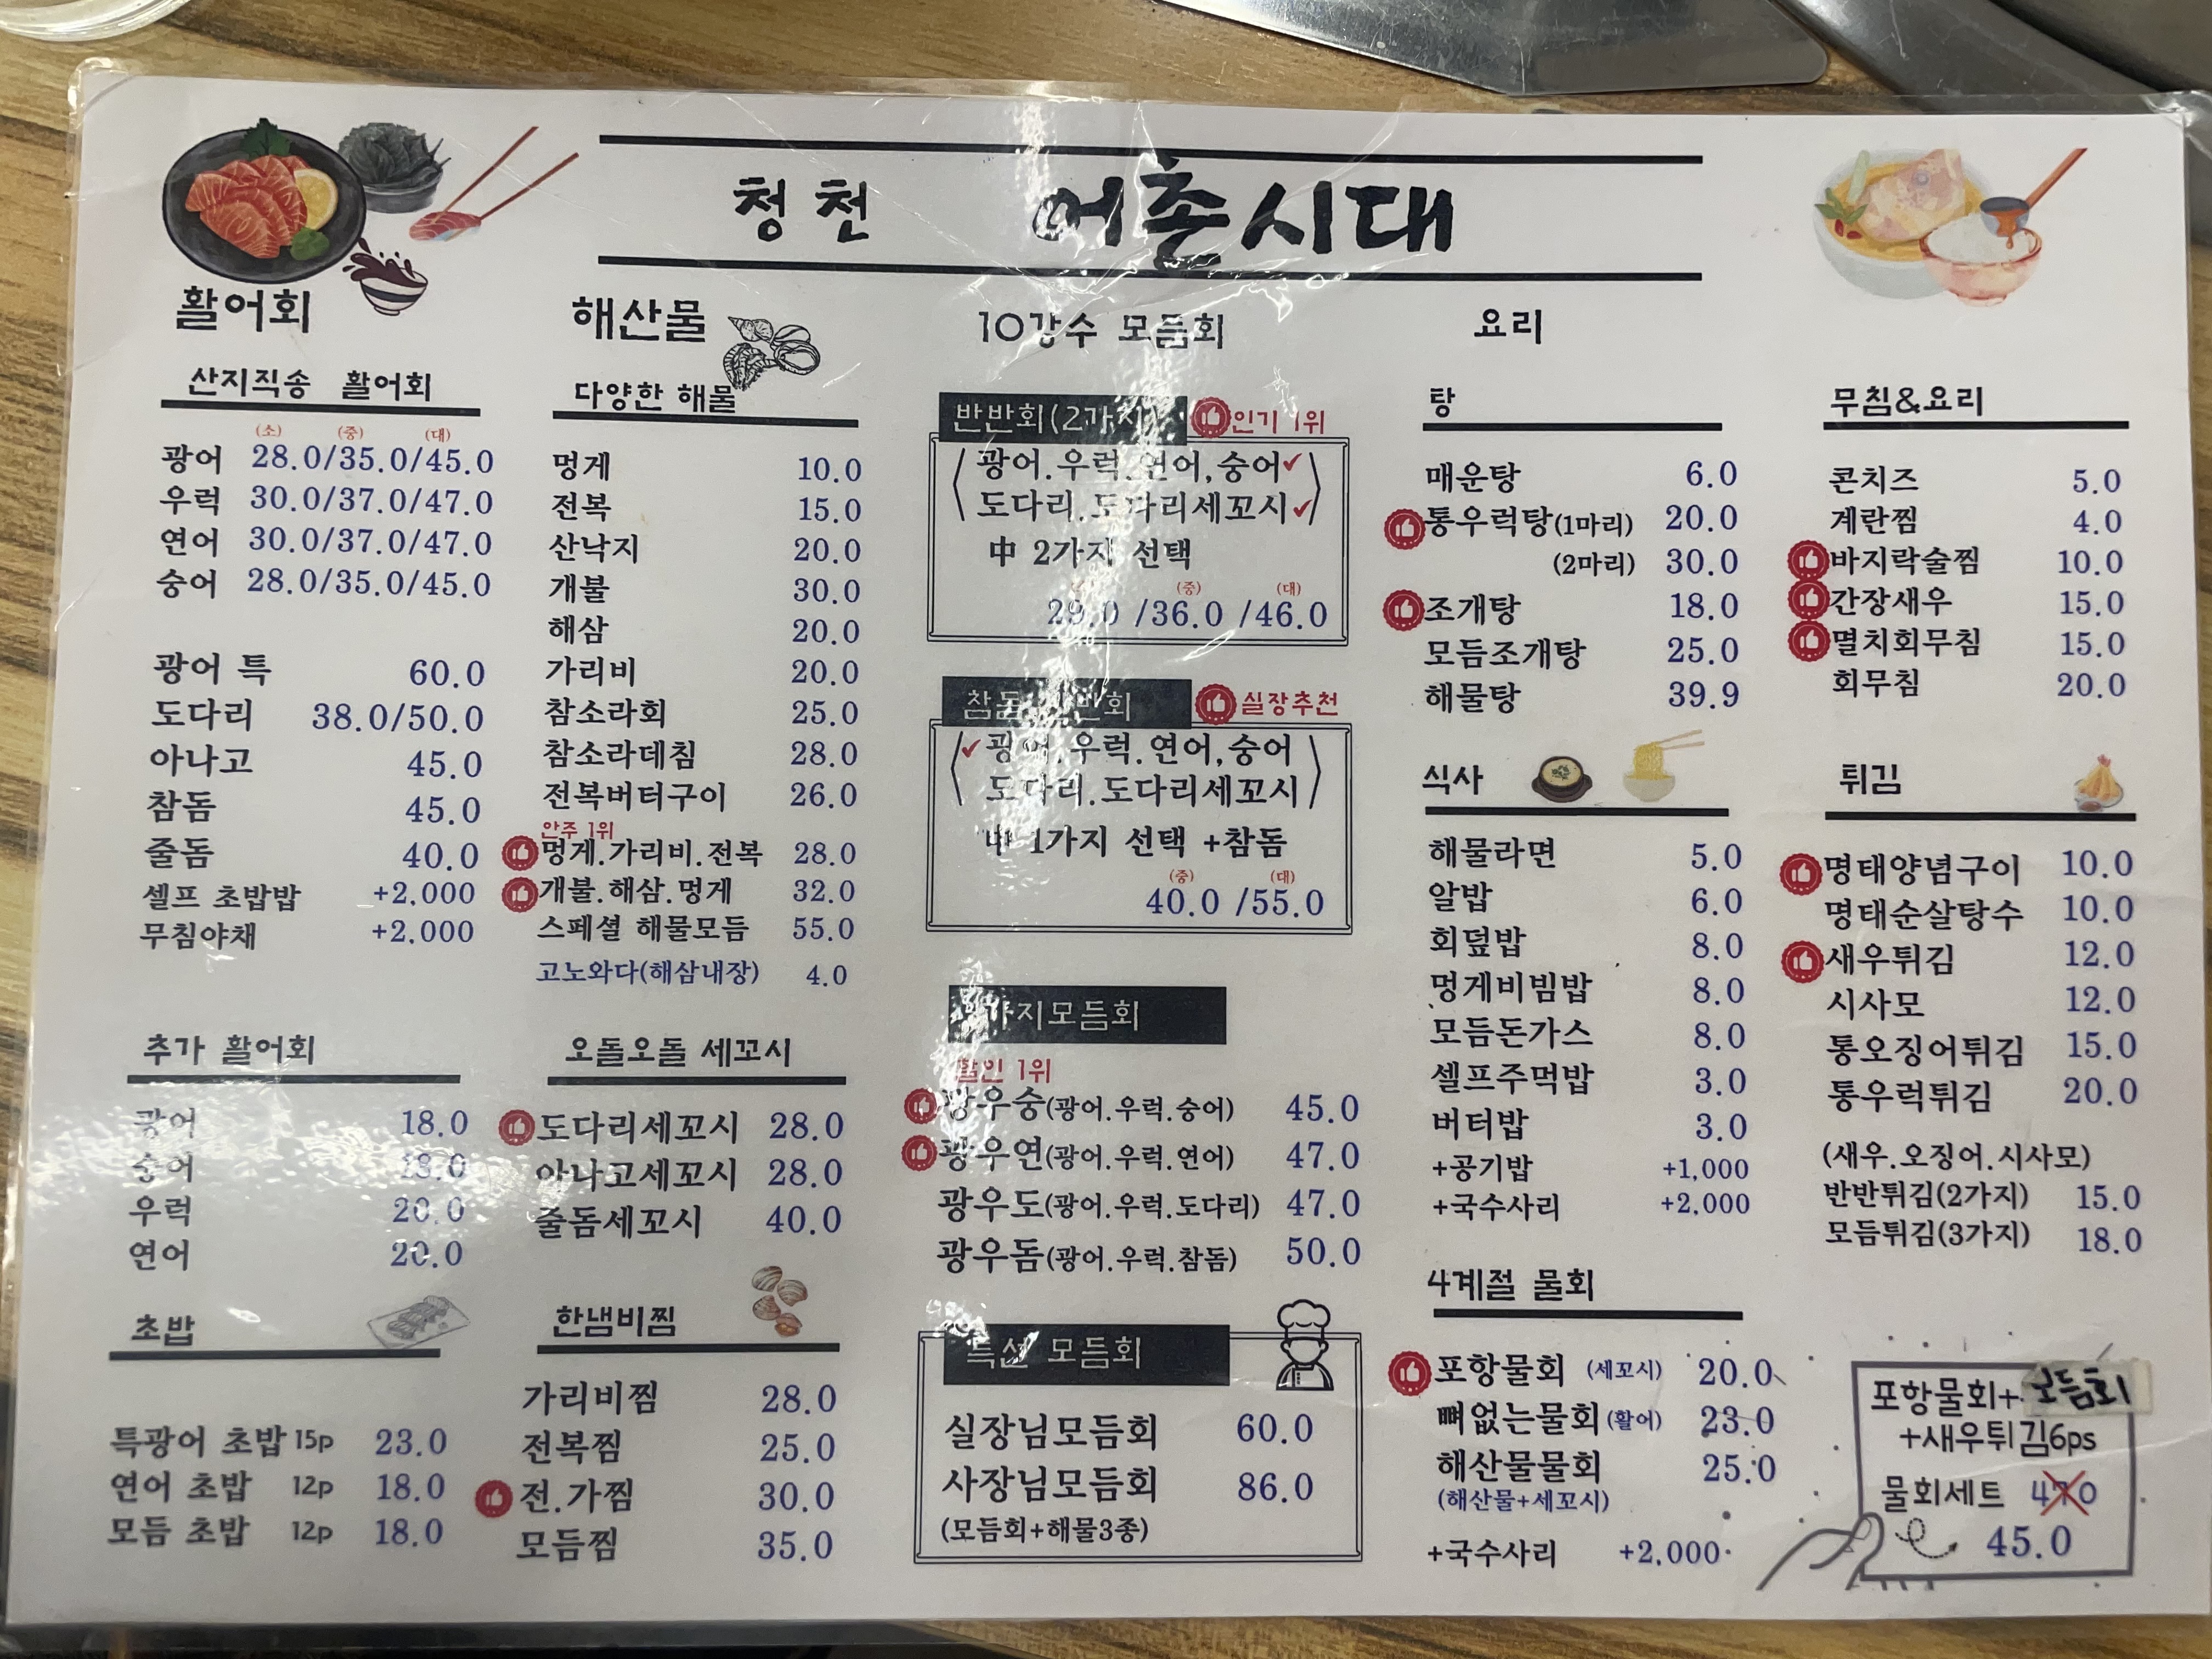 청천 어촌시대
활어회
산지직송 활어회
(소) (중) (대)
광어 28.0/35.0/45.0
우럭 30.0/37.0/47.0
연어 30.0/37.0/47.0
숭어 28.0/35.0/45.0
광어 특 60.0
도다리 38.0/50.0
아나고 45.0
참돔 45.0
줄돔 40.0
셀프 초밥밥 +2,000
무침야채 +2,000
추가 활어회
광어 18.0
숭어 18.0
우럭 20.0
연어 20.0
초밥
특광어 초밥 15p 23.0
연어 초밥 12p 18.0
모듬 초밥 12p 18.0
해산물
다양한 해물
멍게 10.0
전복 15.0
산낙지 20.0
개불 30.0
해삼 20.0
가리비 20.0
참소라회 25.0
참소라데침 28.0
전복버터구이 26.0
안주 1위
멍게.가리비.전복 28.0
개불.해삼.멍게 32.0
스페셜 해물모듬 55.0
고노와다(해삼내장) 4.0
오돌오돌 세꼬시
도다리세꼬시 28.0
아나고세꼬시 28.0
줄돔세꼬시 40.0
한냄비찜
가리비찜 28.0
전복찜 25.0
전.가찜 30.0
모듬찜 35.0
10강수 모듬회
반반회(2가지) 인기 1위
광어.우럭.연어,숭어
도다리.도다리세꼬시
中 2가지 선택
(중) (대)
29.0 /36.0 /46.0
실장추천
광어.우럭.연어,숭어
도다리.도다리세꼬시
中 1가지 선택 +참돔
(중) (대)
40.0 /55.0
가지모듬회
할인 1위
광우숭(광어.우럭.숭어) 45.0
광우연(광어.우럭.연어) 47.0
광우도(광어.우럭.도다리) 47.0
광우돔(광어.우럭.참돔) 50.0
특선 모듬회
실장님모듬회 60.0
사장님모듬회 86.0
(모듬회+해물3종)
요리
탕
매운탕 6.0
통우럭탕(1마리) 20.0
(2마리) 30.0
조개탕 18.0
모듬조개탕 25.0
해물탕 39.9
식사
해물라면 5.0
알밥 6.0
회덮밥 8.0
멍게비빔밥 8.0
모듬돈가스 8.0
셀프주먹밥 3.0
버터밥 3.0
+공기밥 +1,000
+국수사리 +2,000
4계절 물회
포항물회 (세꼬시) 20.0
뼈없는물회(활어) 23.0
해산물물회 25.0
(해산물+세꼬시)
+국수사리 +2,000
무침&요리
콘치즈 5.0
계란찜 4.0
바지락술찜 10.0
간장새우 15.0
멸치회무침 15.0
회무침 20.0
튀김
명태양념구이 10.0
명태순살탕수 10.0
새우튀김 12.0
시사모 12.0
통오징어튀김 15.0
통우럭튀김 20.0
(새우.오징어.시사모)
반반튀김(2가지) 15.0
모듬튀김(3가지) 18.0
포항물회+모듬회
+새우튀김6ps
물회세트 47.0
45.0